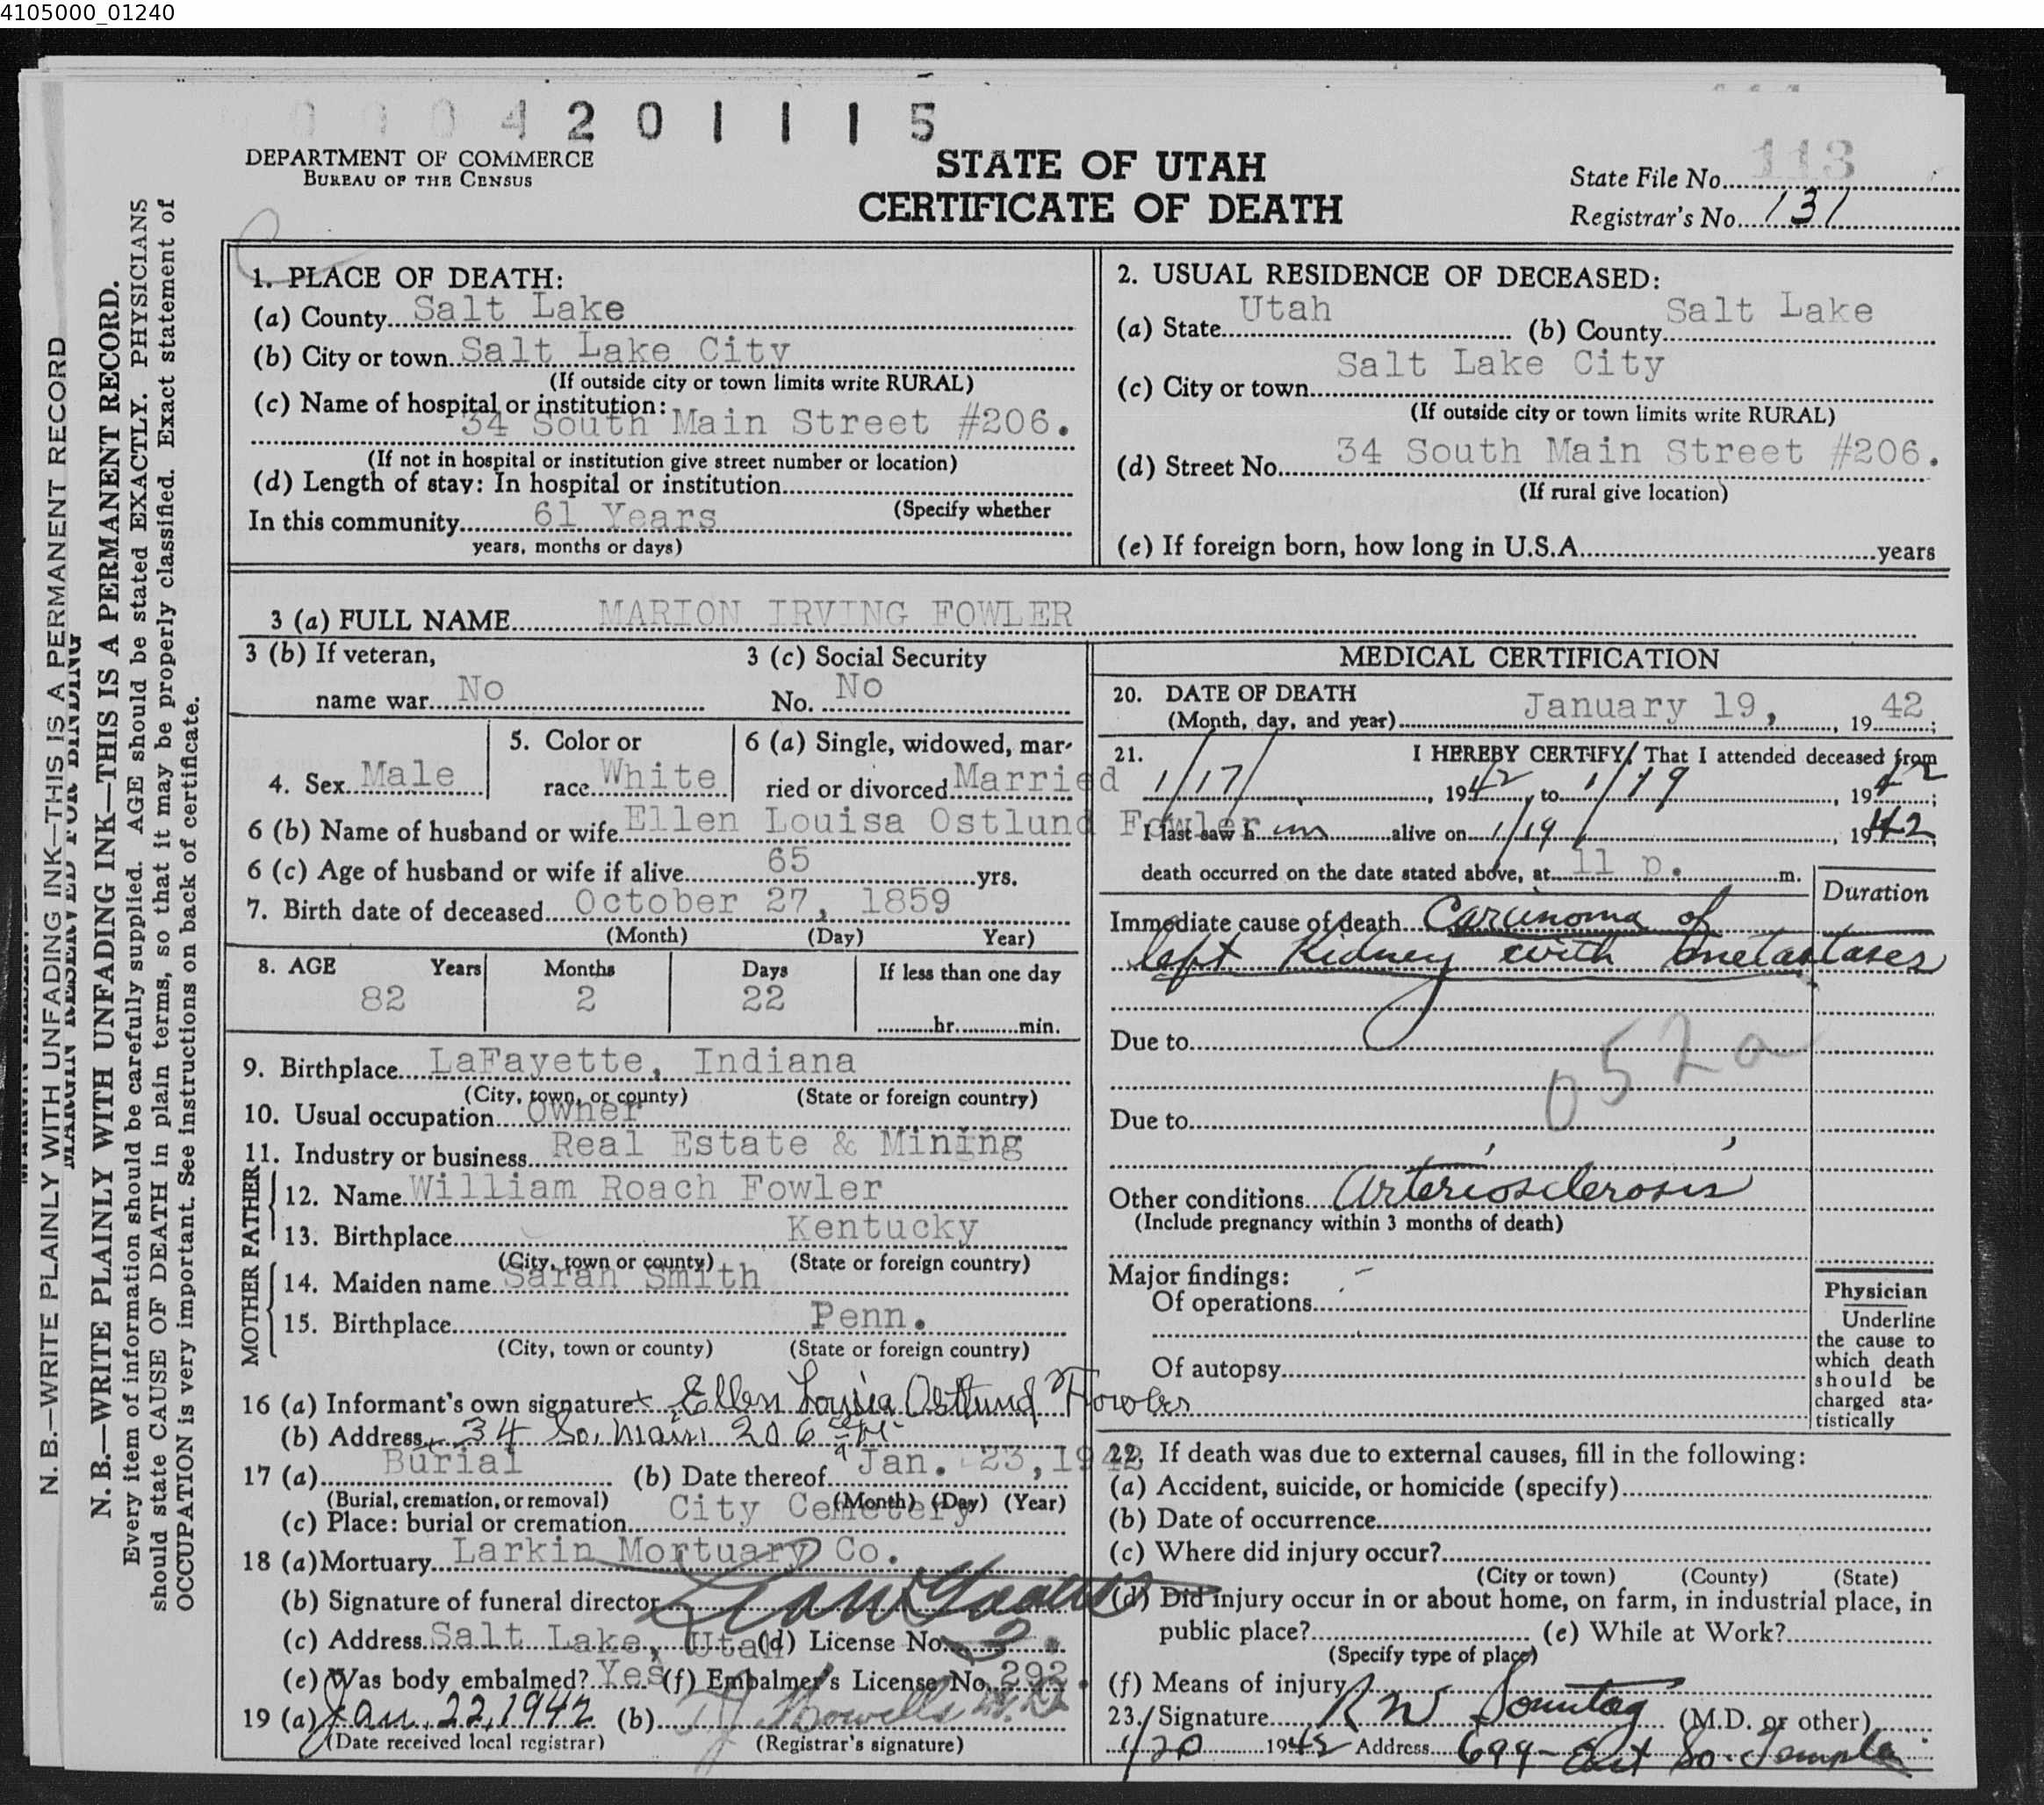 4105000_01240
0004201115
DEPARTMENT OF COMMERCE
BUREAU OF THE CENSUS
STATE OF UTAH
CERTIFICATE OF DEATH
State File No. 113
Registrar's No. 131
N. B.—WRITE PLAINLY WITH UNFADING INK—THIS IS A PERMANENT RECORD
MARGIN RESERVED FOR BINDING
N. B.—WRITE PLAINLY WITH UNFADING INK—THIS IS A PERMANENT RECORD.
Every item of information should be carefully supplied. AGE should be stated EXACTLY. PHYSICIANS
should state CAUSE OF DEATH in plain terms, so that it may be properly classified. Exact statement of
OCCUPATION is very important. See instructions on back of certificate.
1. PLACE OF DEATH:
(a) County Salt Lake
(b) City or town Salt Lake City
(If outside city or town limits write RURAL)
(c) Name of hospital or institution:
34 South Main Street #206.
(If not in hospital or institution give street number or location)
(d) Length of stay: In hospital or institution
(Specify whether
In this community 61 Years
years, months or days)
2. USUAL RESIDENCE OF DECEASED:
(a) State Utah (b) County Salt Lake
(c) City or town Salt Lake City
(If outside city or town limits write RURAL)
(d) Street No. 34 South Main Street #206.
(If rural give location)
(e) If foreign born, how long in U.S.A. years
3 (a) FULL NAME MARION IRVING FOWLER
3 (b) If veteran,
name war No
3 (c) Social Security
No. No
4. Sex Male
5. Color or
race White
6 (a) Single, widowed, mar-
ried or divorced Married
6 (b) Name of husband or wife Ellen Louisa Ostlund Fowler
6 (c) Age of husband or wife if alive 65 yrs.
7. Birth date of deceased October 27, 1859
(Month) (Day) Year)
8. AGE Years Months Days If less than one day
82 2 22
hr. min.
9. Birthplace LaFayette, Indiana
(City, town, or county) (State or foreign country)
10. Usual occupation Owner
11. Industry or business Real Estate & Mining
FATHER
12. Name William Roach Fowler
13. Birthplace Kentucky
(City, town or county) (State or foreign country)
MOTHER
14. Maiden name Sarah Smith
15. Birthplace Penn.
(City, town or county) (State or foreign country)
16 (a) Informant's own signature x Ellen Louisa Ostlund Fowler
(b) Address 34 So. Main 206
17 (a) Burial (b) Date thereof Jan. 23, 1942
(Burial, cremation, or removal) (Month) (Day) (Year)
(c) Place: burial or cremation City Cemetery
18 (a) Mortuary Larkin Mortuary Co.
(b) Signature of funeral director
(c) Address Salt Lake, Utah (d) License No. 2.
(e) Was body embalmed? Yes (f) Embalmer's License No. 292.
19 (a) Jan. 22, 1942 (b) T J Howells M.D.
(Date received local registrar) (Registrar's signature)
MEDICAL CERTIFICATION
20. DATE OF DEATH
(Month, day, and year) January 19, , 19 42;
21. I HEREBY CERTIFY, That I attended deceased from
1/17/ , 1942, to 1/19 , 1942;
I last saw h im alive on 1/19 , 1942,
death occurred on the date stated above, at 11 p. m.
Duration
Immediate cause of death Carcinoma of
left Kidney with metastases
Due to
052a
Due to
Other conditions Arteriosclerosis
(Include pregnancy within 3 months of death)
Major findings:
Of operations
Of autopsy
Physician
Underline
the cause to
which death
should be
charged sta-
tistically
22. If death was due to external causes, fill in the following:
(a) Accident, suicide, or homicide (specify)
(b) Date of occurrence
(c) Where did injury occur?
(City or town) (County) (State)
(d) Did injury occur in or about home, on farm, in industrial place, in
public place? (e) While at Work?
(Specify type of place)
(f) Means of injury
23. Signature R W Sonntag (M.D. or other)
1/20 1942 Address 699 - East So. Temple